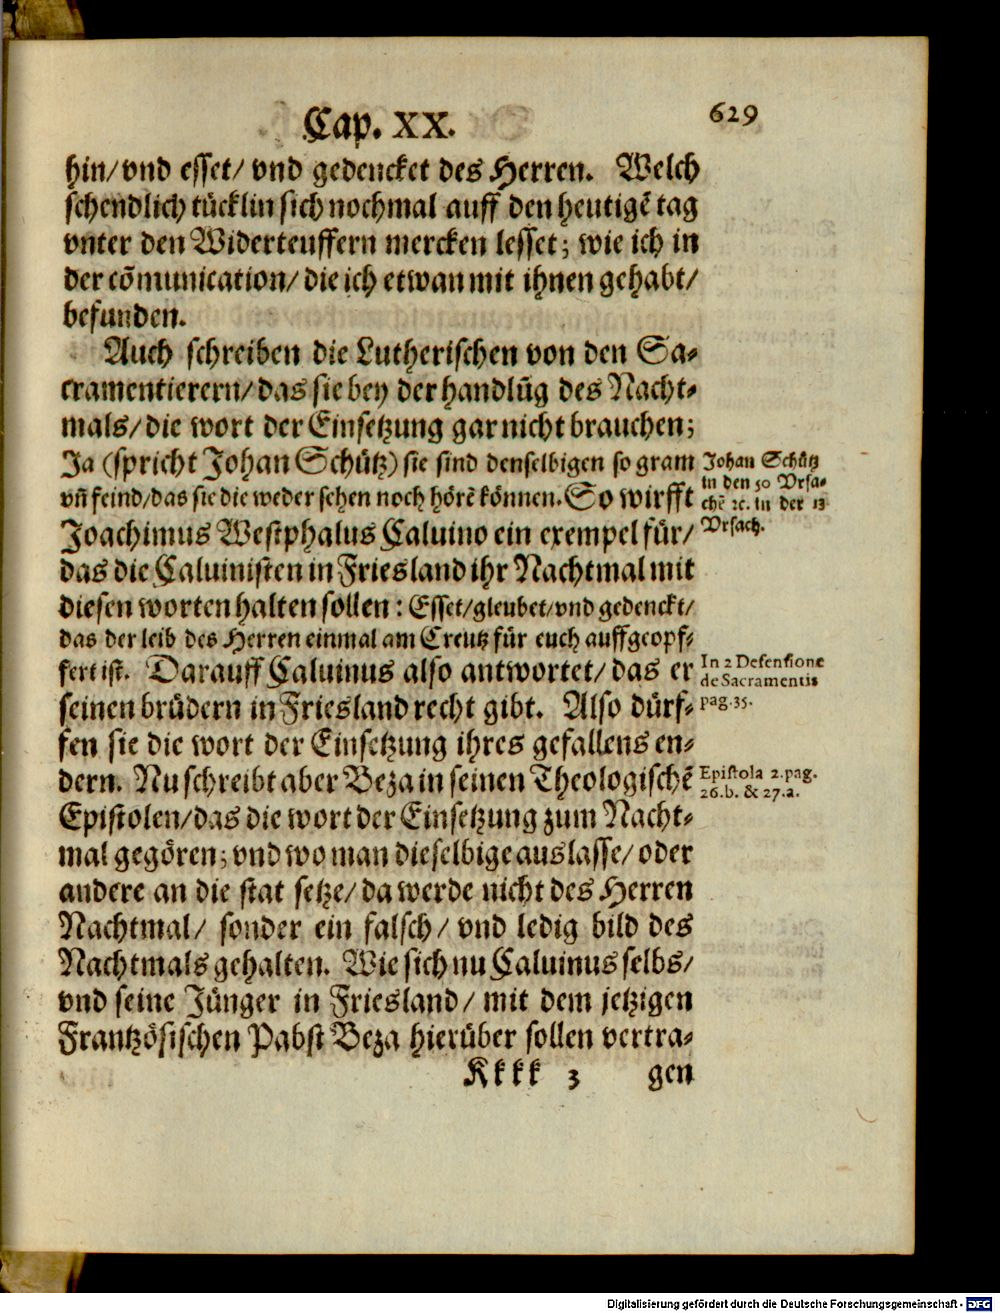 Cap. XX.
629
hin/ vnd esset/ vnd gedencket des Herren. Welch
schendlich tücklin sich nochmal auff den heutigē tag
vnter den Widerteuffern mercken lesset; wie ich in
der cōmunication/ die ich etwan mit ihnen gehabt/
befunden.
Auch schreiben die Lutherischen von den Sa-
cramentierern/ das sie bey der handlūg des Nacht-
mals/ die wort der Einsetzung gar nicht brauchen;
Ja (spricht Johan Schütz) sie sind denselbigen so gram
vñ feind/ das sie die weder sehen noch hörē können. So wirfft
Joachimus Westphalus Caluino ein exempel für/
das die Caluinisten in Friesland ihr Nachtmal mit
diesen worten halten sollen: Esset/ gleubet/ vnd gedenckt/
das der leib des Herren einmal am Creutz für euch auffgeopf-
fert ist. Darauff Caluinus also antwortet/ das er
seinen brüdern in Friesland recht gibt. Also dürf-
fen sie die wort der Einsetzung ihres gefallens en-
dern. Nu schreibt aber Beza in seinen Theologischē
Epistolen/ das die wort der Einsetzung zum Nacht-
mal gegören; vnd wo man dieselbige auslasse/ oder
andere an die stat setze/ da werde nicht des Herren
Nachtmal/ sonder ein falsch/ vnd ledig bild des
Nachtmals gehalten. Wie sich nu Caluinus selbs/
vnd seine Jünger in Friesland/ mit dem jetzigen
Frantzösischen Pabst Beza hierüber sollen vertra-
Kkkk 3 gen
Johan Schütz
in den 50 Vrsa-
chē ꝛc. in der 13
Vrsach.
In 2 Defensione
de Sacramentis
pag. 35.
Epistola 2. pag.
26. b. & 27. a.
Digitalisierung gefördert durch die Deutsche Forschungsgemeinschaft - DFG